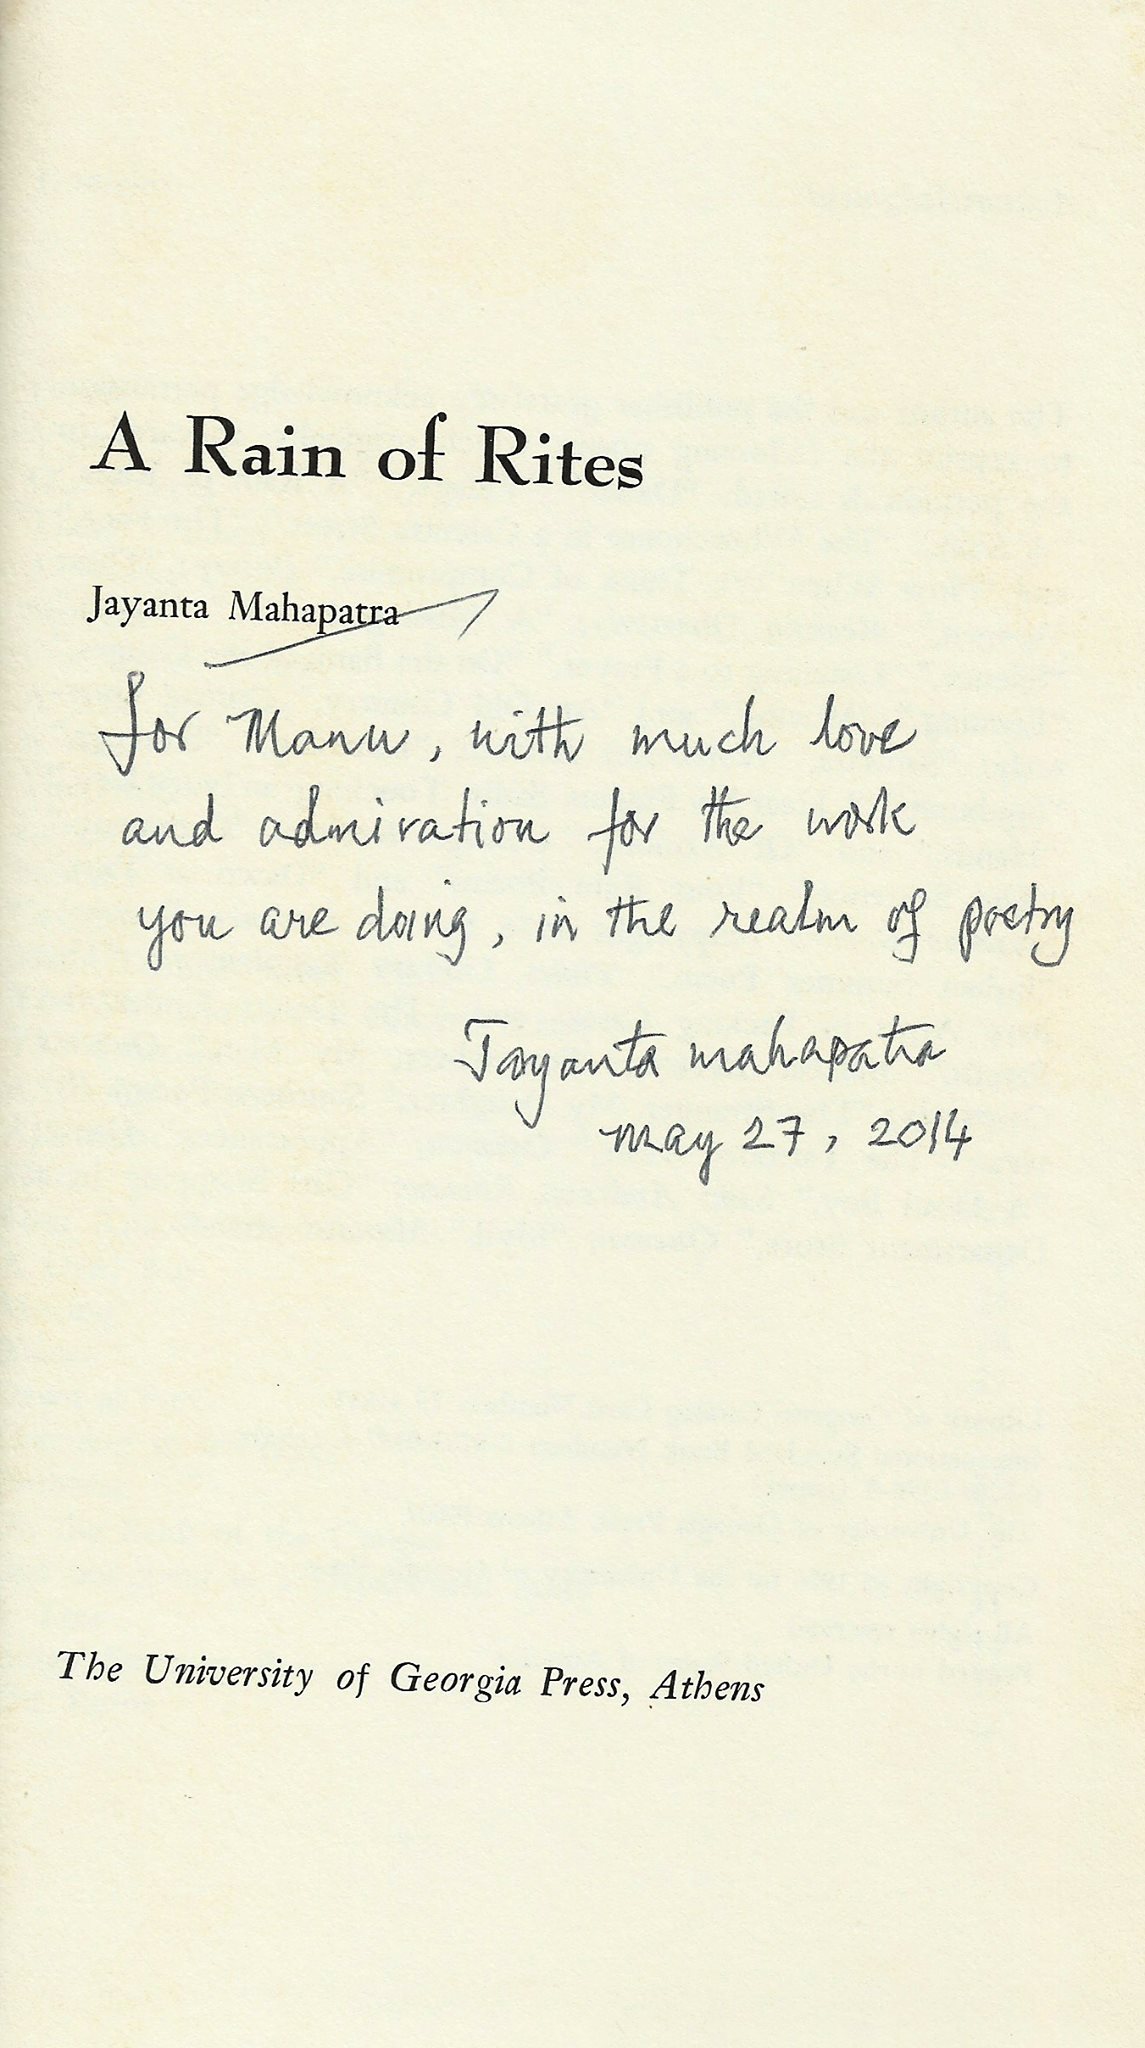 A Rain of Rites
Jayanta Mahapatra
for Manu, with much love
and admiration for the work
you are doing, in the realm of poetry
Jayanta Mahapatra
May 27, 2014
The University of Georgia Press, Athens